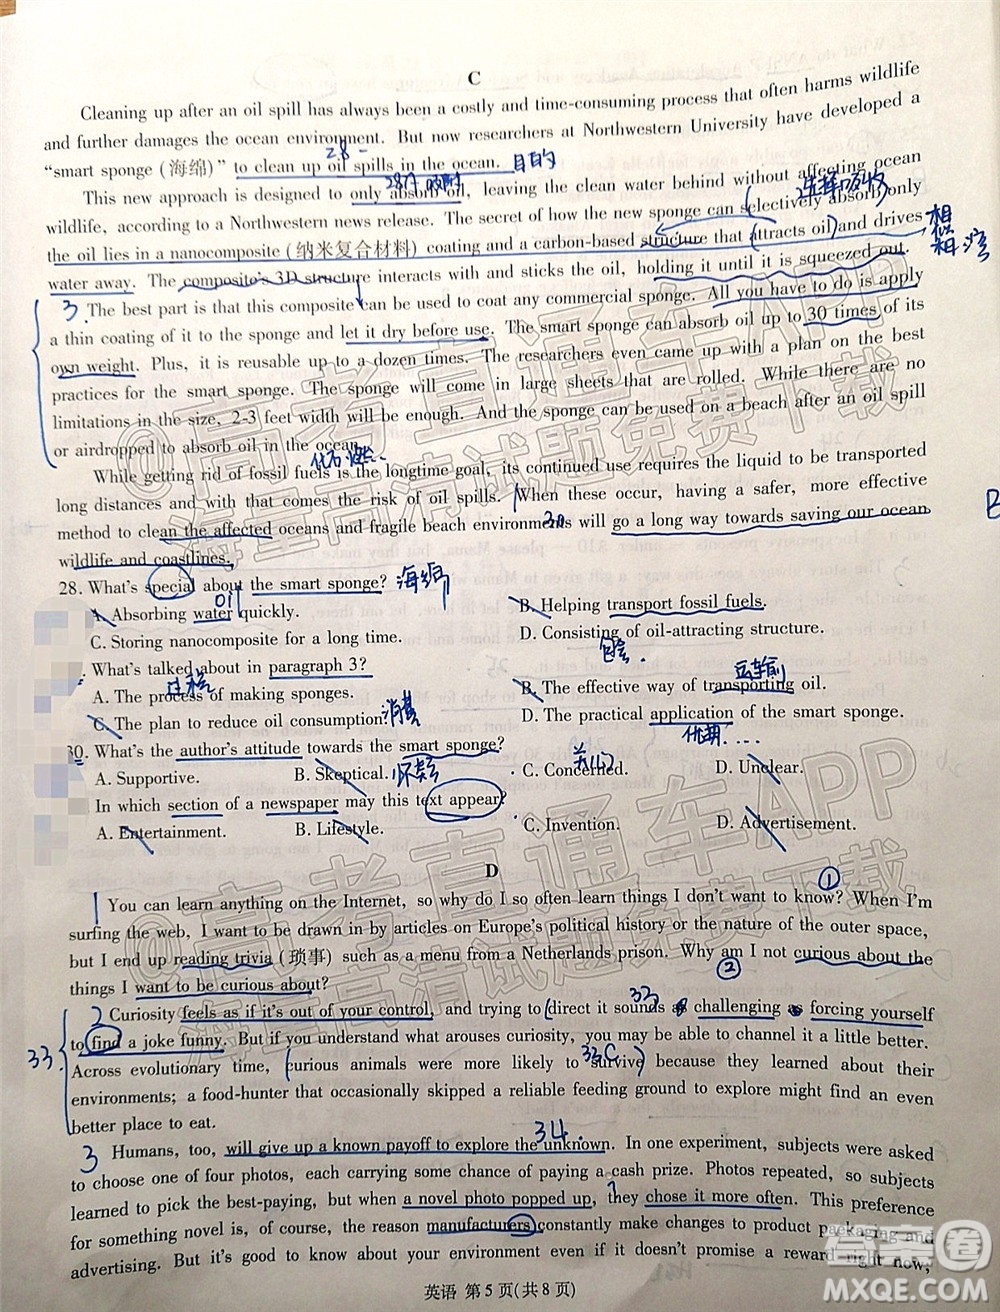 C
Cleaning up after an oil spill has always been a costly and time-consuming process that often harms wildlife
and further damages the ocean environment. But now researchers at Northwestern University have developed a
“smart sponge (海绵)” to clean up oil spills in the ocean. 目的
This new approach is designed to only absorb oil, leaving the clean water behind without affecting ocean
wildlife, according to a Northwestern news release. The secret of how the new sponge can selectively absorb only
the oil lies in a nanocomposite (纳米复合材料) coating and a carbon-based structure that attracts oil and drives
water away. The composite's 3D structure interacts with and sticks the oil, holding it until it is squeezed out.
3 The best part is that this composite can be used to coat any commercial sponge. All you have to do is apply
a thin coating of it to the sponge and let it dry before use. The smart sponge can absorb oil up to 30 times of its
own weight. Plus, it is reusable up to a dozen times. The researchers even came up with a plan on the best
practices for the smart sponge. The sponge will come in large sheets that are rolled. While there are no
limitations in the size, 2-3 feet width will be enough. And the sponge can be used on a beach after an oil spill
or airdropped to absorb oil in the ocean.
While getting rid of fossil fuels is the longtime goal, its continued use requires the liquid to be transported
long distances and with that comes the risk of oil spills. When these occur, having a safer, more effective
method to clean the affected oceans and fragile beach environments will go a long way towards saving our ocean
wildlife and coastlines.
28. What's special about the smart sponge? 海绵
A. Absorbing water quickly.
B. Helping transport fossil fuels.
C. Storing nanocomposite for a long time.
D. Consisting of oil-attracting structure.
. What's talked about in paragraph 3?
A. The process of making sponges.
B. The effective way of transporting oil.
C. The plan to reduce oil consumption. 消耗
D. The practical application of the smart sponge.
30. What's the author's attitude towards the smart sponge?
A. Supportive.
B. Skeptical. 怀疑
C. Concerned.
D. Unclear.
In which section of a newspaper may this text appear?
A. Entertainment.
B. Lifestyle.
C. Invention.
D. Advertisement.
D
1 You can learn anything on the Internet, so why do I so often learn things I don't want to know? When I'm
surfing the web, I want to be drawn in by articles on Europe's political history or the nature of the outer space,
but I end up reading trivia (琐事) such as a menu from a Netherlands prison. Why am I not curious about the
things I want to be curious about?
2 Curiosity feels as if it's out of your control, and trying to direct it sounds as challenging as forcing yourself
to find a joke funny. But if you understand what arouses curiosity, you may be able to channel it a little better.
Across evolutionary time, curious animals were more likely to survive because they learned about their
environments; a food-hunter that occasionally skipped a reliable feeding ground to explore might find an even
better place to eat.
3 Humans, too, will give up a known payoff to explore the unknown. In one experiment, subjects were asked
to choose one of four photos, each carrying some chance of paying a cash prize. Photos repeated, so subjects
learned to pick the best-paying, but when a novel photo popped up, they chose it more often. This preference
for something novel is, of course, the reason manufacturers constantly make changes to product packaging and
advertising. But it's good to know about your environment even if it doesn't promise a reward right now;
英语 第5页(共8页)
@高考直通车APP
海量高清试题免费下载
@高考直通车APP
海量高清试题免费下载
答案圈
MXQE.COM